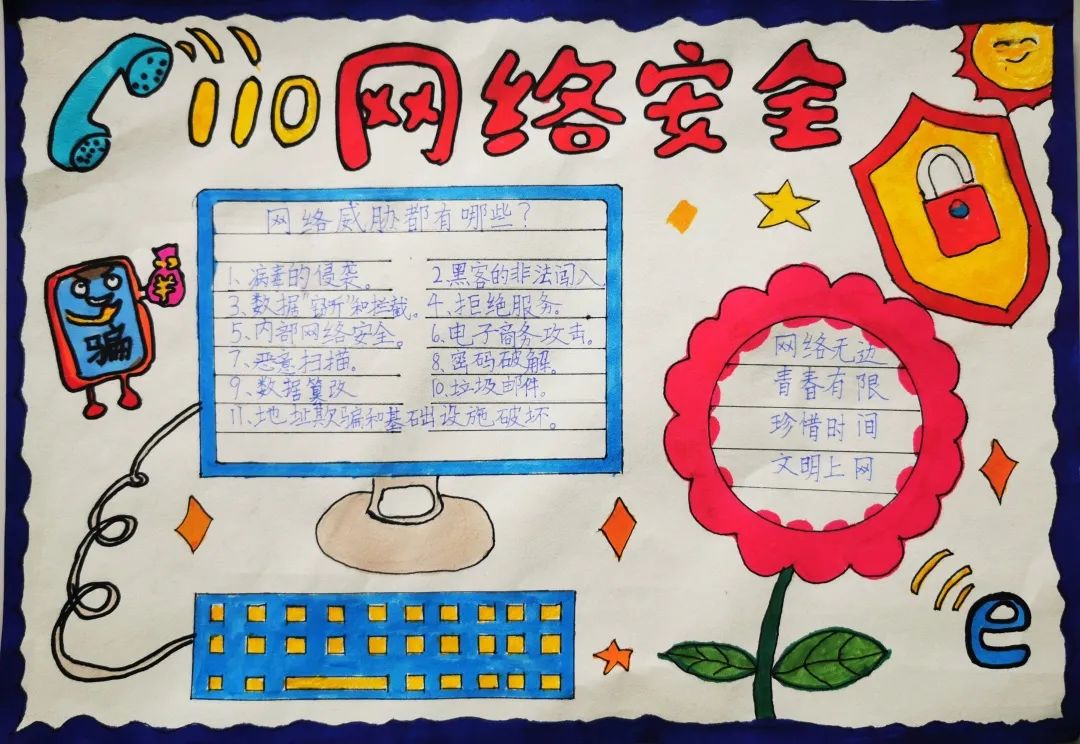 110 网络安全
网络威胁都有哪些?
1、病毒的侵袭。 2、黑客的非法闯入
3、数据"窃听"和拦截。 4、拒绝服务。
5、内部网络安全。 6、电子商务攻击。
7、恶意扫描。 8、密码破解。
9、数据篡改 10、垃圾邮件。
11、地址欺骗和基础设施破坏。
骗
¥
网络无边
青春有限
珍惜时间
文明上网
e